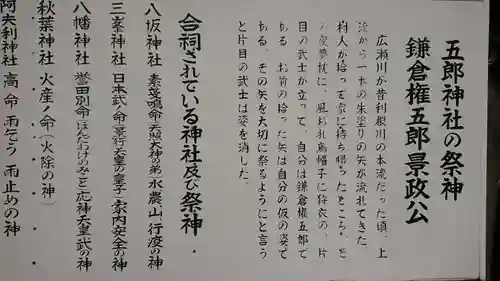 五郎神社の祭神
鎌倉権五郎景政公
広瀬川が昔利根川の本流だった頃、上
流から一本の朱塗りの矢が流れてきた。
村人が拾って家に持ち帰ったところ、そ
の夜夢枕に、風おれ烏帽子に狩衣の、片
目の武士が立って、自分は鎌倉権五郎で
ある。お前の拾った矢は自分の仮の姿で
ある。その矢を大切に祭るようにと言う
と片目の武士は姿を消した。
合祠されている神社及び祭神
八坂神社 素戔嗚命(天照大神の弟)水、農、山、行疫の神
三峯神社 日本武命(景行天皇の皇子)家内安全の神
八幡神社 誉田別命(ほんだわけのみこと)応神天皇、武の神
秋葉神社 火産命(火除の神)
阿夫利神社 高命 雨乞う 雨止めの神